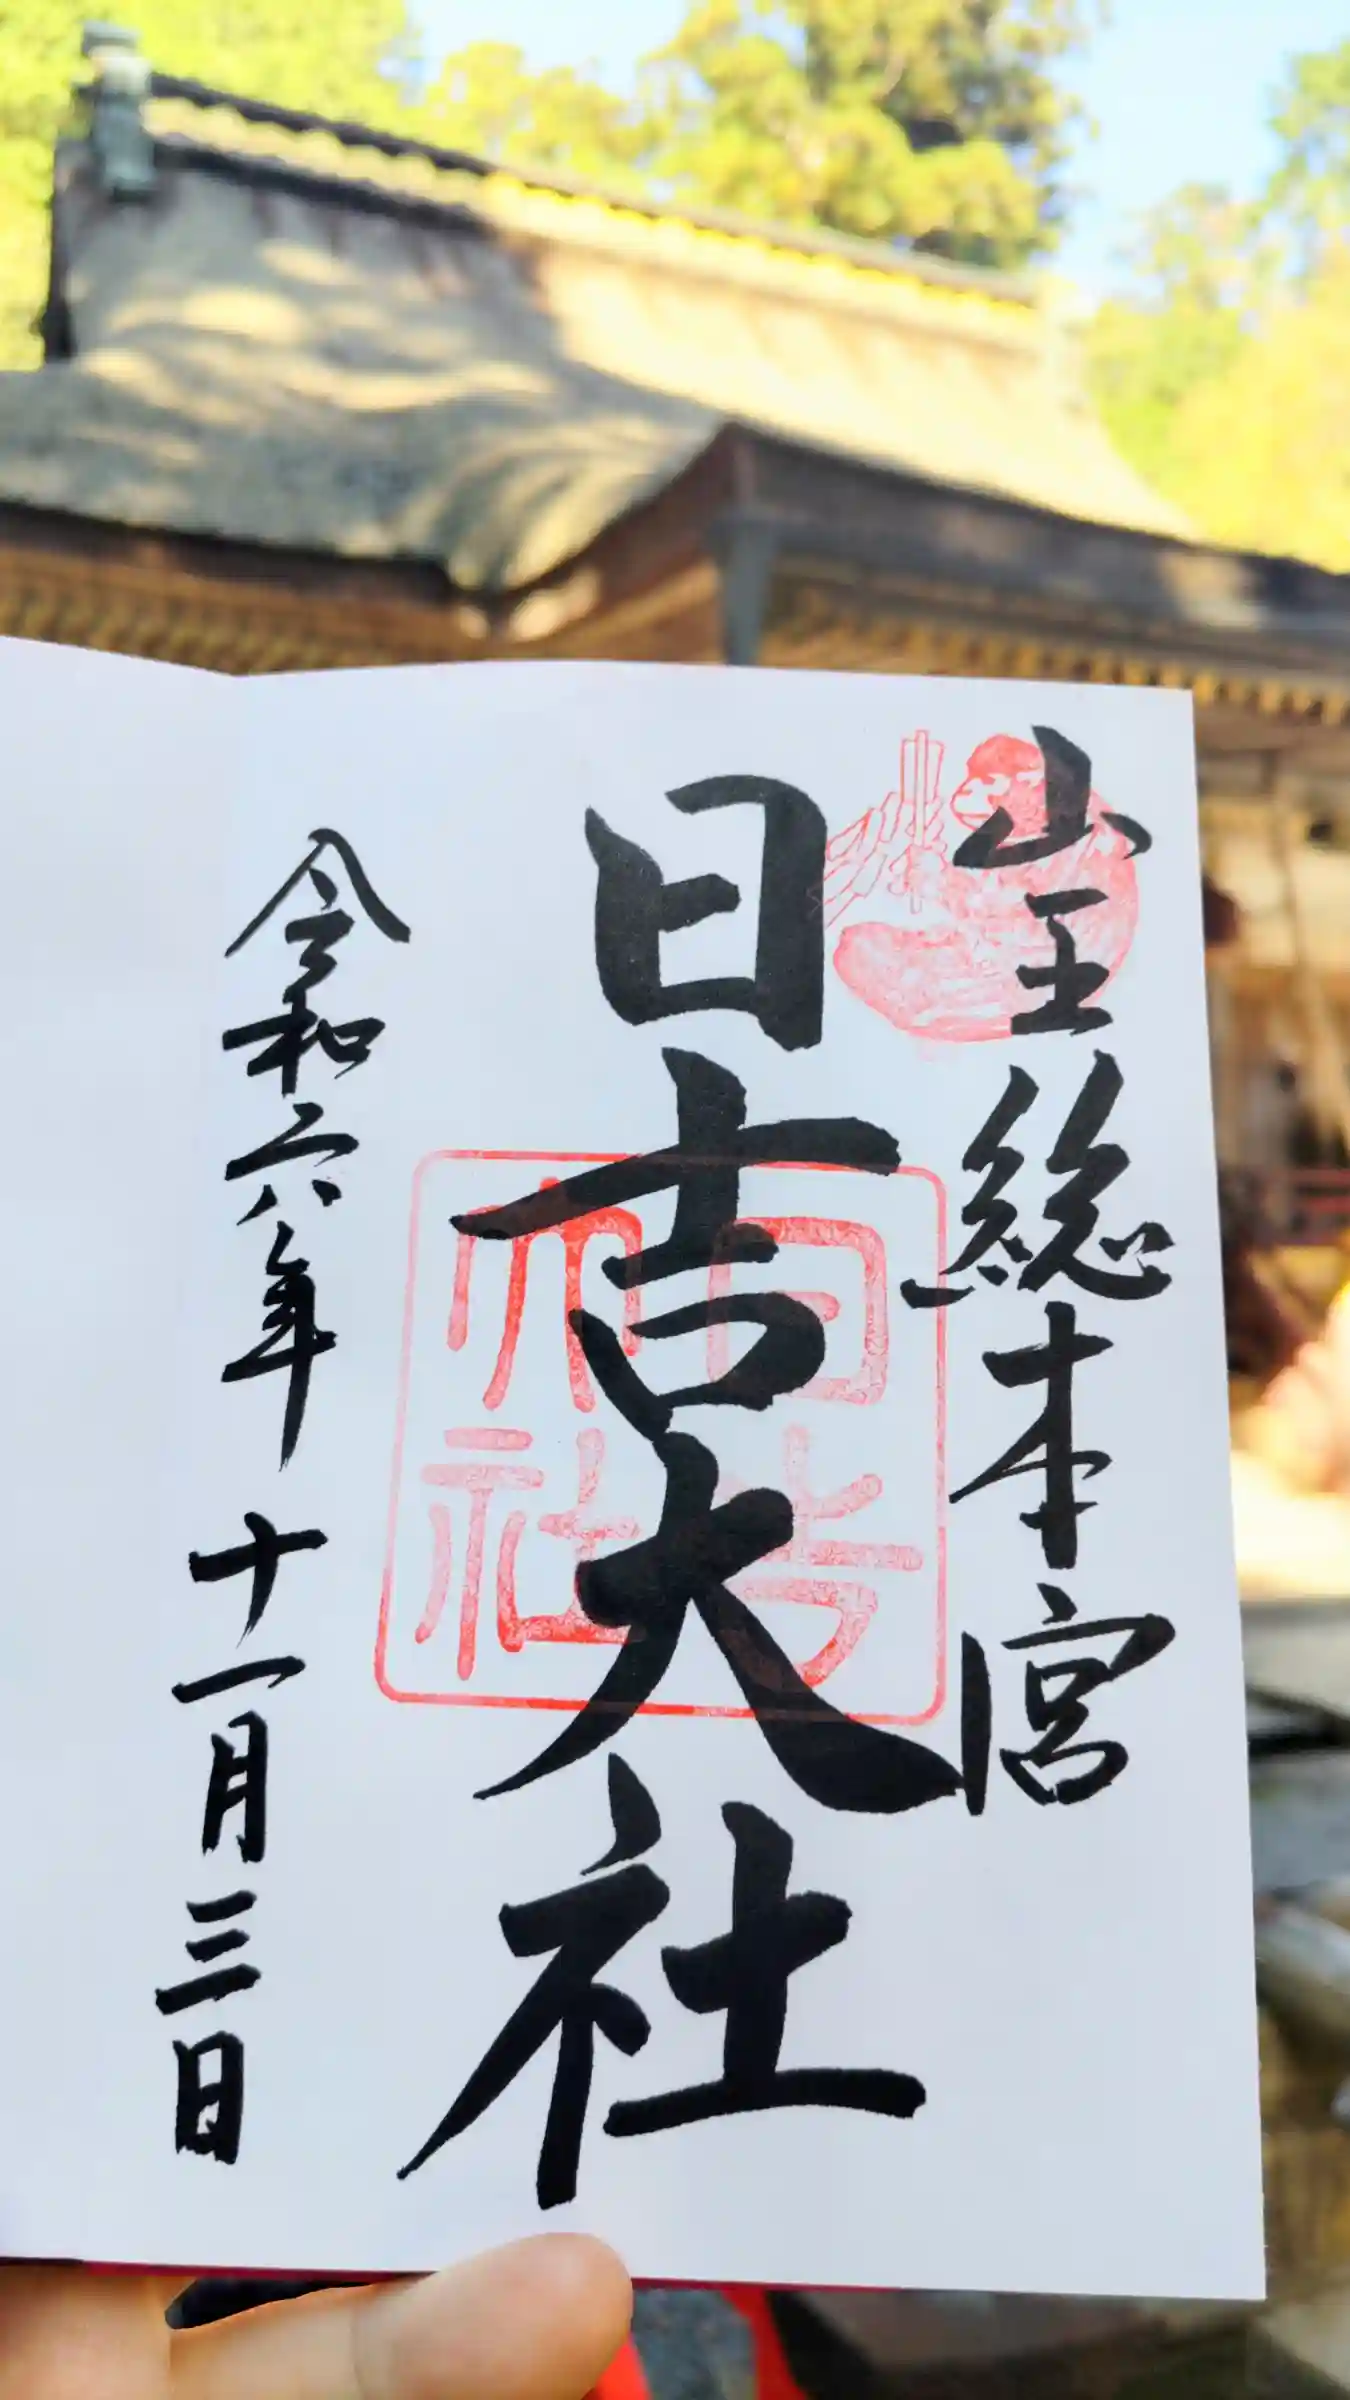 山王総本宮
日吉大社
日吉大社
令和六年十一月三日